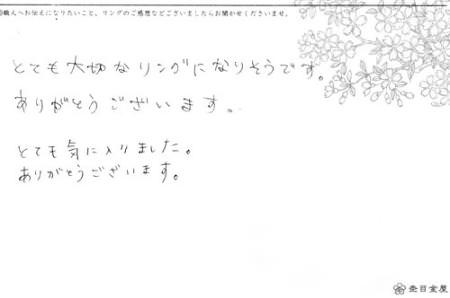 ◎職人へお伝えになりたいこと、リングのご感想などございましたらお聞かせくださいませ。
とても大切なリングになりそうです。
ありがとうございます。
とても気に入りました。
ありがとうございます。
杢目金屋